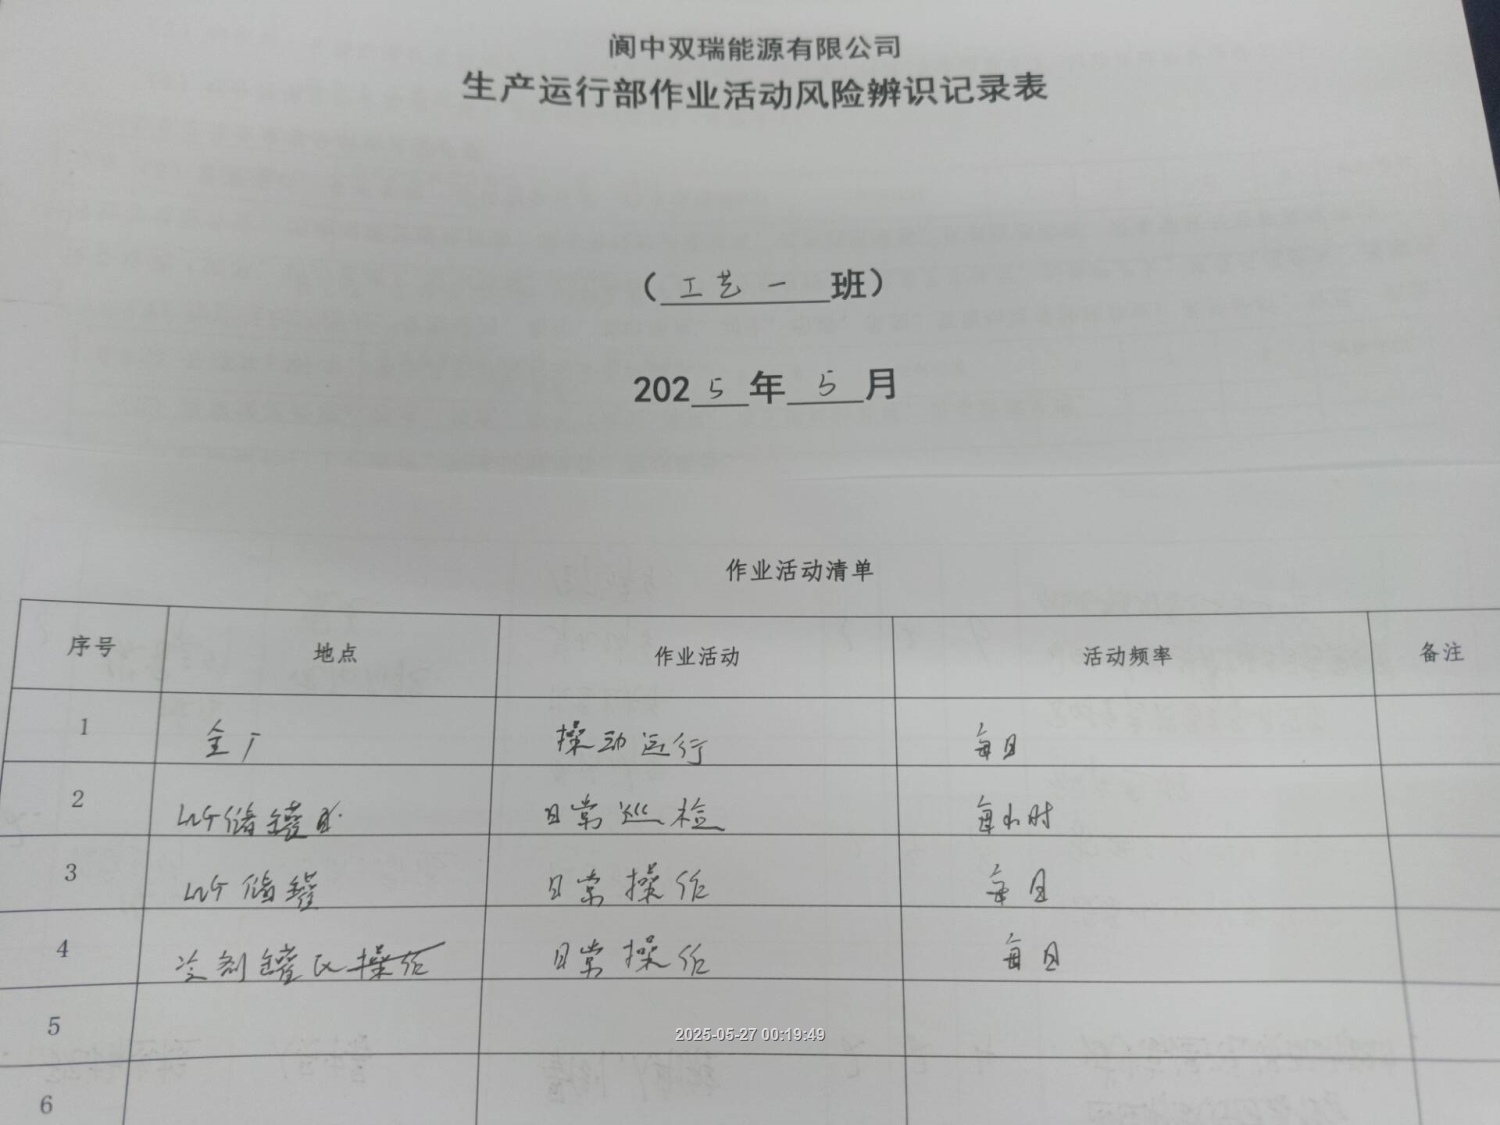 阆中双瑞能源有限公司
生产运行部作业活动风险辨识记录表
（工艺一班）
2025年5月
作业活动清单
序号 地点 作业活动 活动频率 备注
1 全厂 操动运行 每日
2 储罐区 日常巡检 每小时
3 储罐 日常操作 每日
4 冷剂罐区操作 日常操作 每日
5
6
2025-05-27 00:19:49